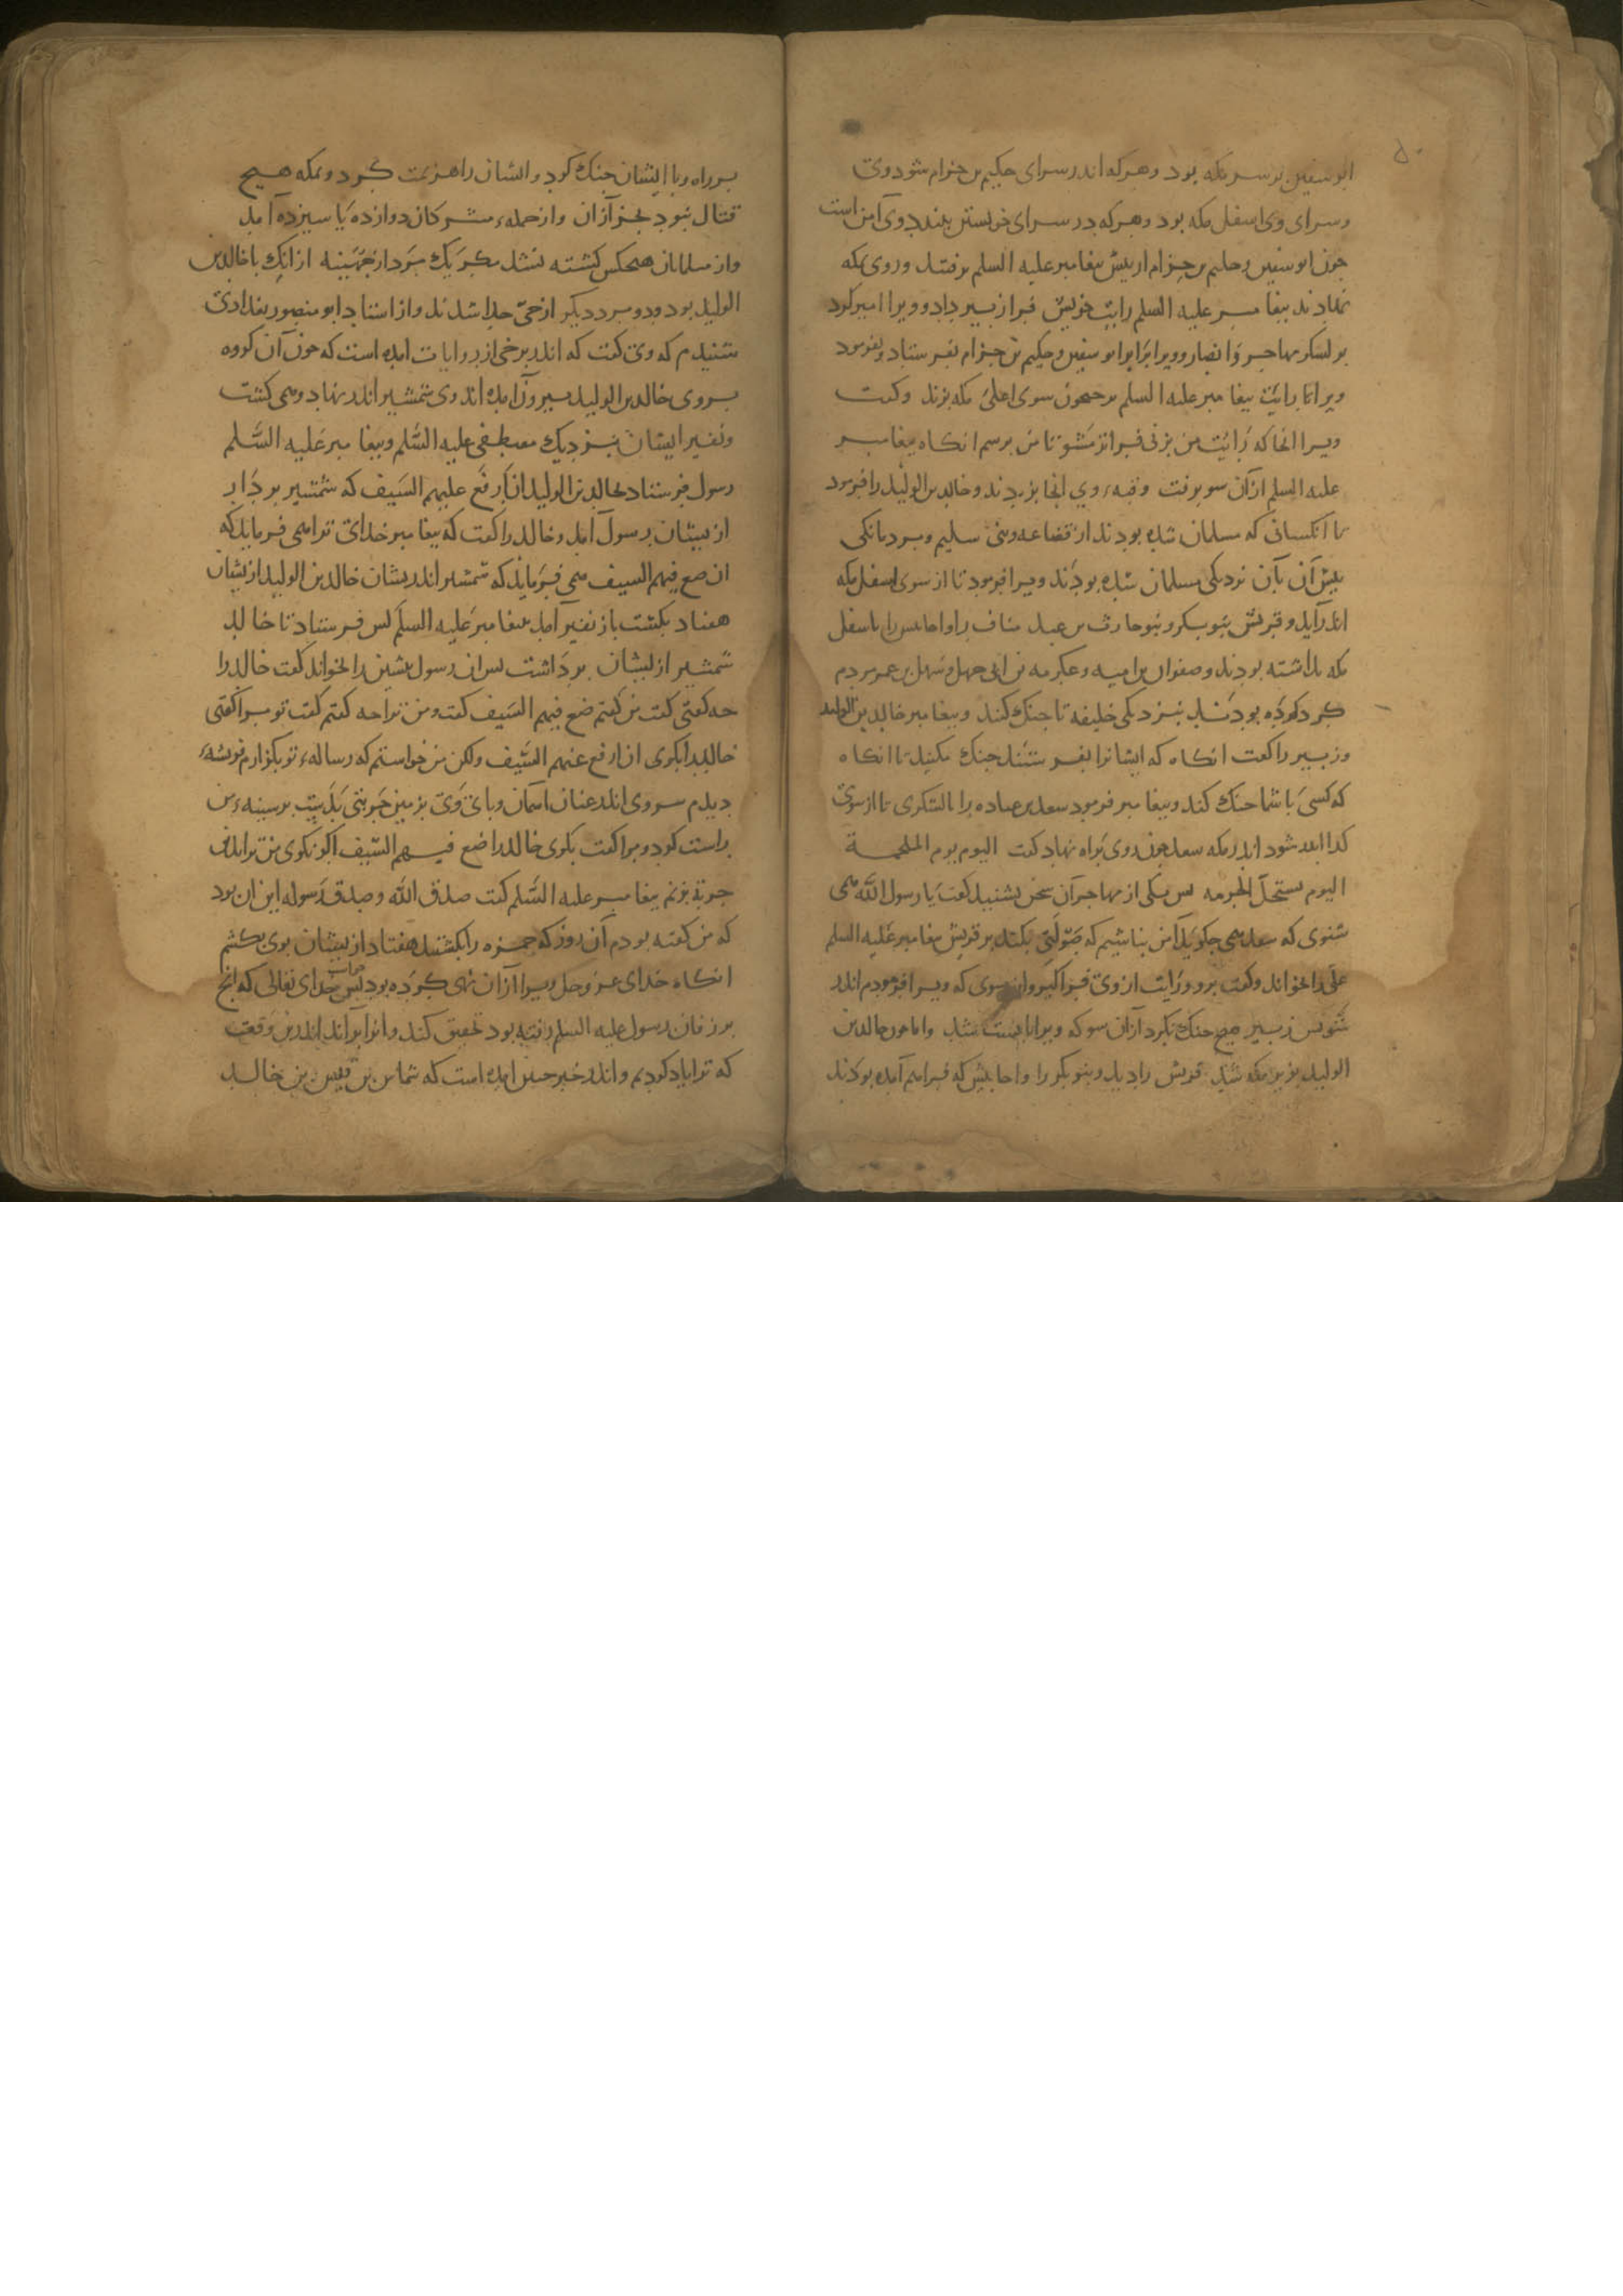 ۵۰
ابو سفین بر سر مکه بود و هر که اندر سرای حکیم بن حزام شود وی
و سرای وی اسفل مکه بود و هر که در سرای خویشتن ببندد وی آمن است
جون ابو سفین و حکیم بن حزام از پیش بیغامبر علیه السلم برفتند و روی بمکه
نهادند بیغامبر علیه السلم رایت خویش فرا زبیر داد و ویرا امیر کرد
بر لشکر مهاجر و انصار و ویرا بر ابو سفین و حکیم بن حزام بفرستاد و بفرمود
ویرا تا رایت بیغامبر علیه السلم بر حجون سوی اعلی مکه بزند و کفت
ویرا انجا که رایت من بزنی فراتر مشو تا من برسم انکاه بیغامبر
علیه السلم از آن سو برفت و قبهٔ وی انجا بزدند و خالد بن الولید را فرمود
با آنکسانی که مسلمان شده بودند از قضاعه و بنی سلیم و مردمانکی
بیش آن بآن نزدیکی مسلمان شده بودند ویرا فرمود تا از سوی اسفل مکه
اندر آید و قریش بنو بکر و بنو حارث بن عبد مناف را و احابیش را باسفل
مکه بداشته بودند و صفوان بن امیه و عکرمه بن ابی جهل و سهل بن عمر مردم
کرد کرده بودند بنزدیکی خلیفه تا جنک کنند و بیغامبر خالد بن الولید
و زبیر را کفت انکاه که ایشانرا بفرستند جنک مکنید تا انکاه
که کسی با شما جنک کند و بیغامبر فرمود سعد بن عباده را با لشکری تا از سوی
کدا اندر شود اندر مکه سعد جون روی براه نهاد کفت الیوم یوم الملحمة
الیوم تستحل الحرمه بس یکی از مهاجران سخن بشنید کفت یا رسول الله می
شنوی که سعد می جکوید آمن نباشیم که صولتی بکند بر قریش بیغامبر علیه السلم
علی را بخواند و کفت برو و رایت از وی فرا کیر و از سوی که ویرا فرمودم اندر
شو بس زبیر هیج جنک نکرد از آن سو که ویرا بایست شد و اما جون خالد بن
الولید بزیر مکه شد قریش را دید و بنو بکر را و احابیش که فراهم آمده بودند
بر راه و با ایشان جنک کرد و ایشان را هزیمت کرد و بمکه هیج
قتال نبود بجز از آن و از جملهٔ مشرکان دوازده یا سیزده آمد
و از مسلمانان هیجکس کشته نشد مکر یک مرد از جهینه از انک با خالد بن
الولید بود و دو مرد دیکر از حی جدا شدند و از استاد ابو منصور بغدادی
شنیدم که وی کفت که اندر برخی از روایات آمده است که جون آن کروه
بروی خالد بن الولید بیرون آمده اند وی شمشیر اندر نهاد و می کشت
و نفیر ایشان بنزدیک مصطفی علیه السلم و بیغامبر علیه السلم
رسول فرستاد بخالد بن الولید ان ارفع علیهم السیف که شمشیر بر دار
از بیشان رسول آمد و خالد را کفت که بیغامبر خدای ترا می فرماید که
ان ضع فیهم السیف می فرماید که شمشیر اندر یشان خالد بن الولید از یشان
هفتاد بکشت باز نفیر آمد بیغامبر علیه السلم کس فرستاد تا خالد
شمشیر از یشان برداشت بس ان رسول بیشین را بخواند کفت خالد را
جه کفتی کفت من کفتم ضع فیهم السیف کفت و من ترا جه کفتم کفت تو مرا کفتی
خالد را بکوی ان ارفع عنهم السیف ولکن من خواستم که رسالهٔ تو بکزارم فرشتهٔ
دیدم سر وی اندر عنان اسمان و بای وی بزمین حربتی بدست بر سینهٔ من
راست کرد و مرا کفت بکوی خالد را ضع فیهم السیف اکر نکوی من ترا بدین
حربة بزنم بیغامبر علیه السلم کفت صدق الله و صدق رسوله این ان بود
که من کفته بودم آن روز که حمزه را بکشتند هفتاد از یشان بوی بکشم
انکاه خدای عز و جل ویرا از آن نهی کرده بود بس خدای تعالی که آنج
بر زفان رسول علیه السلم رفته بود تحقیق کند و انرا براند اندرین وقعت
که ترا یاد کردیم و اندر خبر جنین آمده است که شماس بن قیس بن خالد